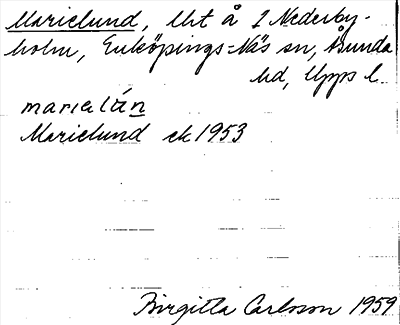 Marielund, lht å 2 Nederby-
holm, Enköpings-Näs sn, Åsunda
hd, Upps l.
marialún
Marielund ek 1953
Birgitta Carlsson 1959